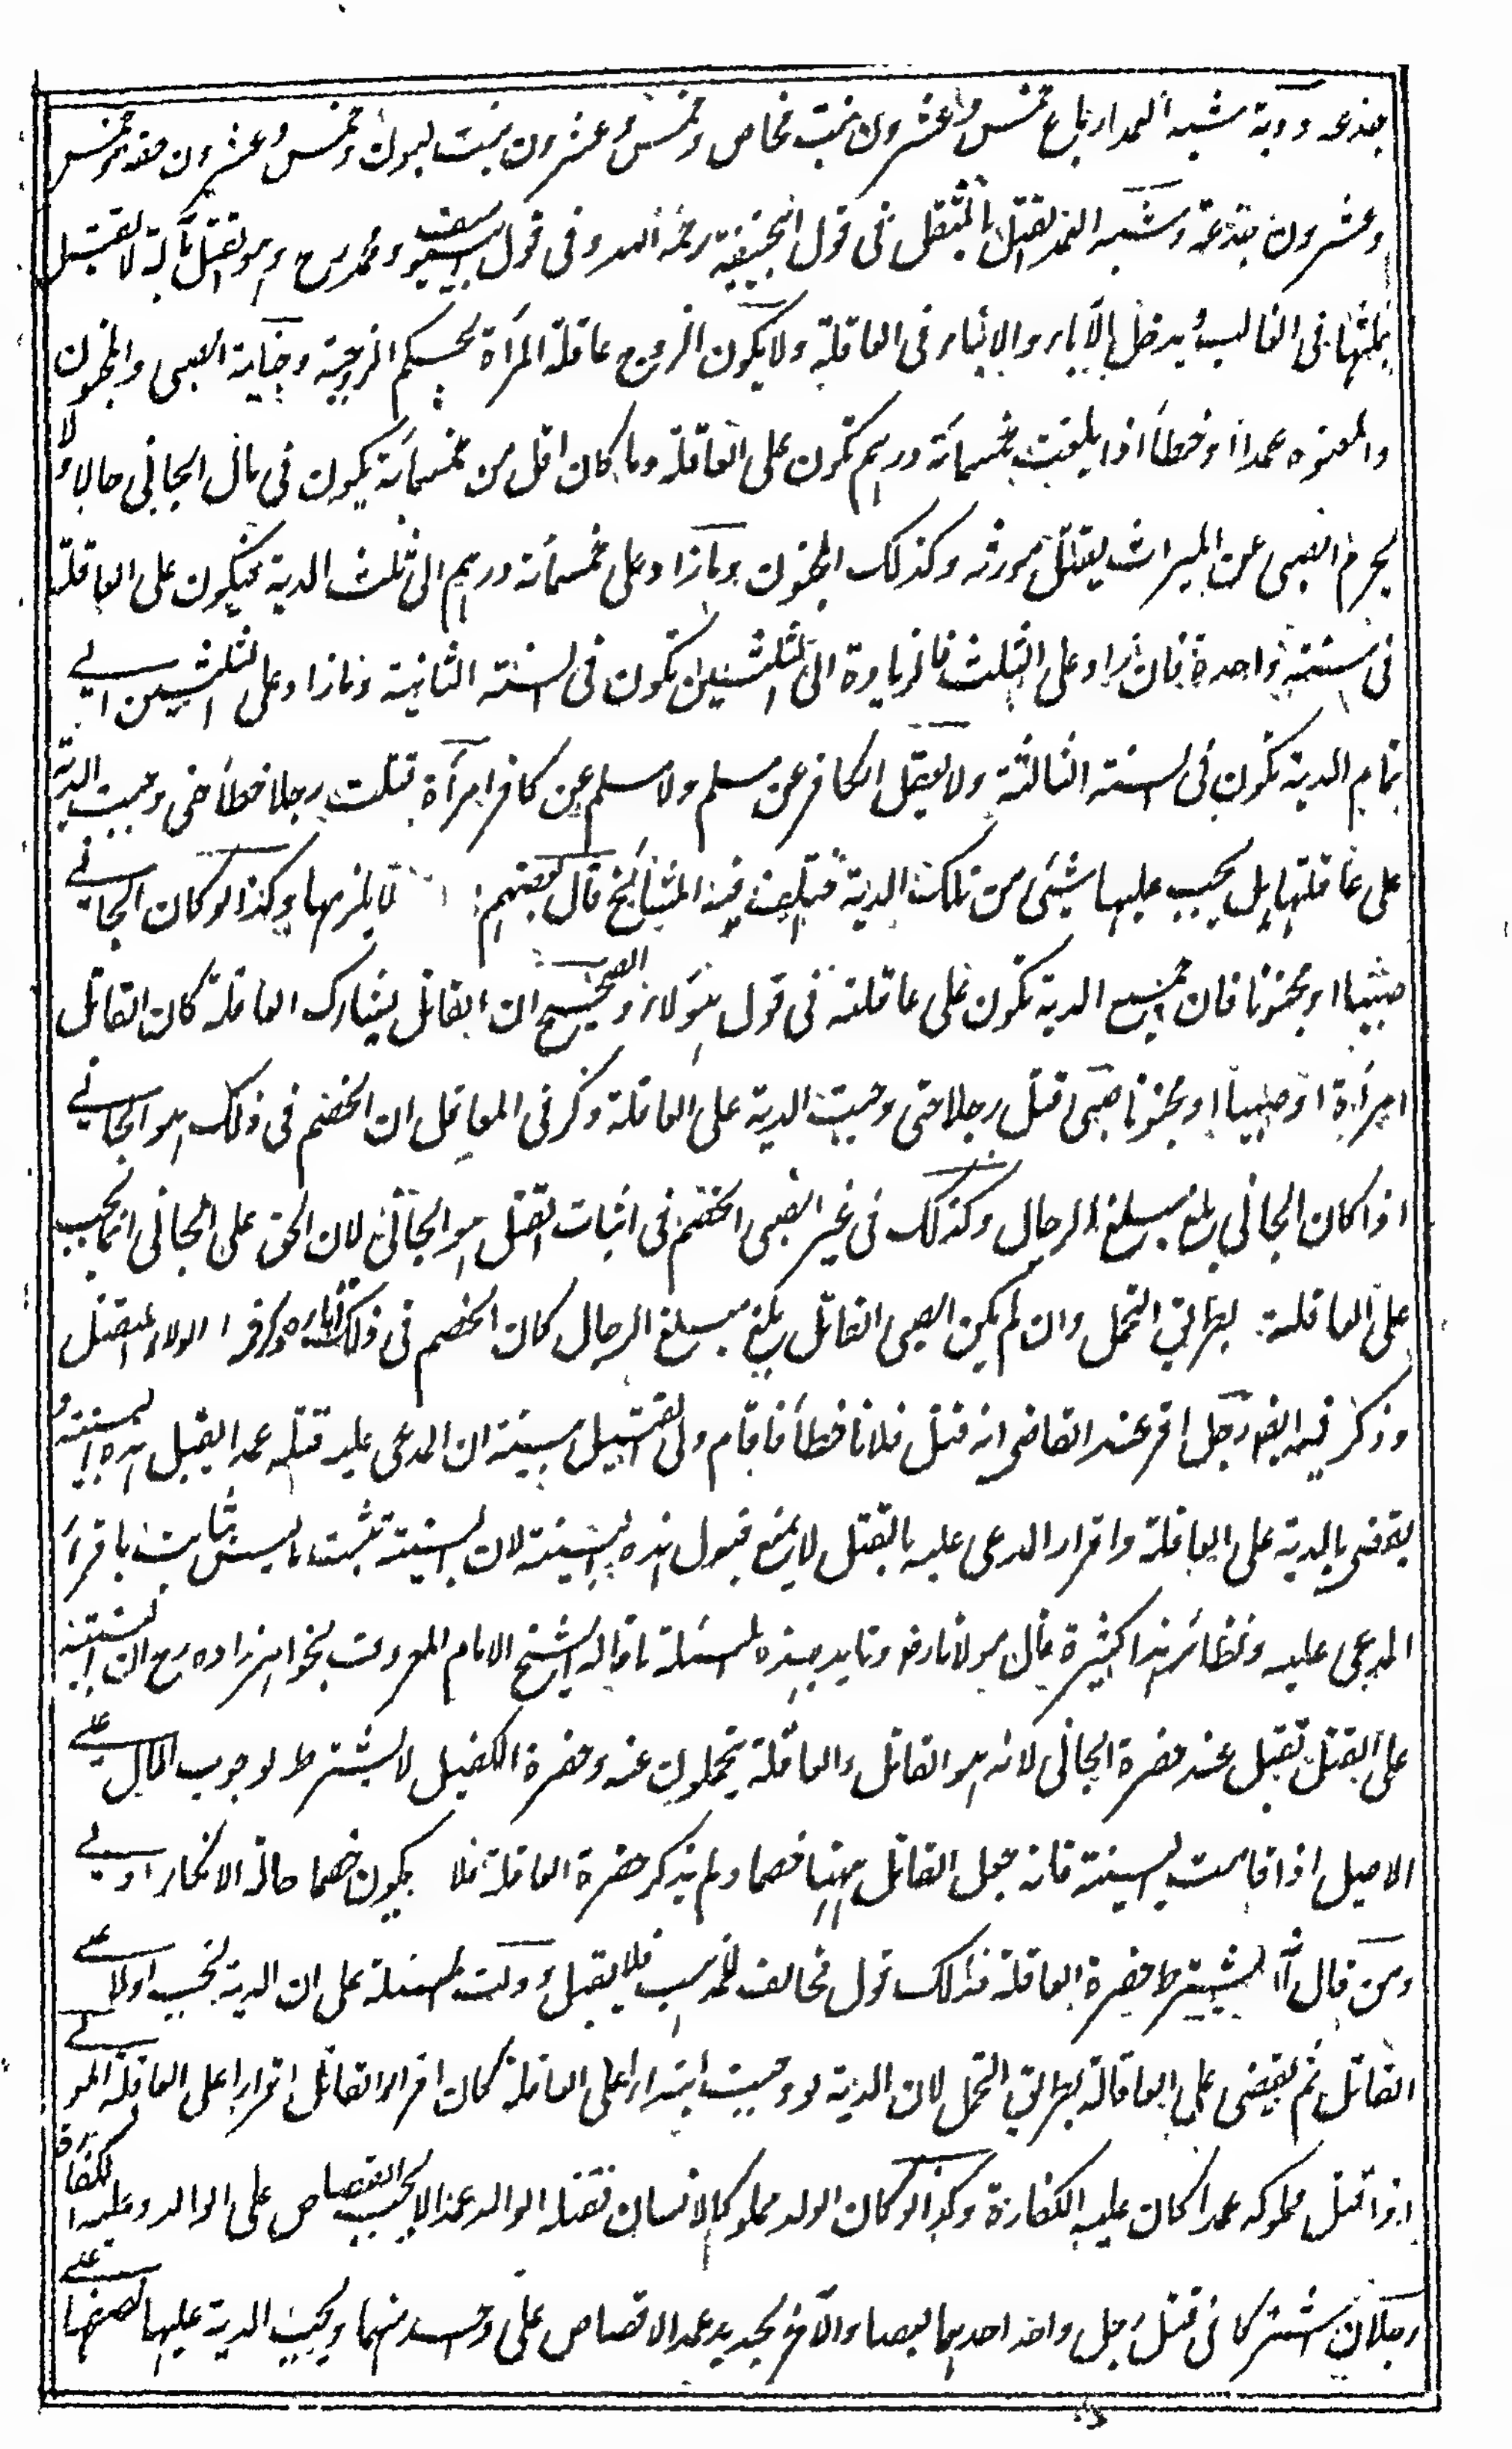 جذعة ودية شبه العمد ارباع خمس وعشرون بنت مخاض وخمس وعشرون بنت لبون وخمس وعشرون حقة وخمس
وعشرون جذعة وشبه العمد القتل بالمثقل فى قول ابيحنيفة رحمه الله وفى قول ابييوسف ومحمد رح هو القتل بآلة لا يقتل
بمثلها فى الغالب ويدخل الآباء والابناء فى العاقلة ولا يكون الزوج عاقلة المرأة بحكم الزوجية وجناية الصبى والمجنون
والمعتوه عمدا او خطأ اذا بلغت خمسمائة درهم تكون على العاقلة وما كان اقل من خمسمائة يكون فى مال الجانى حالا ولا
يحرم الصبى عن الميراث بقتل مورثه وكذلك المجنون وما زاد على خمسمائة درهم الى ثلث الدية يكون على العاقلة
فى سنة واحدة فان زاد على الثلث فالزيادة الى الثلثين تكون فى السنة الثانية وما زاد على الثلثين الى
تمام الدية تكون فى السنة الثالثة ولا يعقل الكافر عن مسلم ولا مسلم عن كافر امرأة قتلت رجلا خطأ حتى وجبت الدية
على عاقلتها هل يجب عليها شيئ من تلك الدية اختلف فيه المشائخ قال بعضهم لا يلزمها وكذا لو كان الجانى
صبيا او مجنونا فان جميع الدية تكون على عاقلته فى قول هؤلاء والصحيح ان القاتل يشارك العاقلة كان القاتل
امرأة او صبيا او مجنونا صبى قتل رجلا حتى وجبت الدية على العاقلة ذكر فى المعاقل ان الخصم فى ذلك هو الجانى
اذا كان الجانى بلغ مبلغ الرجال وكذلك فى غير الصبى الخصم فى اثبات القتل هو الجانى لان الحق على الجانى انما يجب
على العاقلة بطريق التحمل وان لم يكن الصبى القاتل بلغ مبلغ الرجال كان الخصم فى ذلك
وذكر فيه ايضا رجل اقر عند القاضى انه قتل فلانا خطأ فاقام ولى القتيل بينة ان المدعى عليه قتله عمدا يقبل هذه البينة و
يقضى بالدية على العاقلة واقرار المدعى عليه بالقتل لا يمنع قبول هذه البينة لان البينة تثبت ما ليس بثابت باقرار
المدعى عليه ونظائر هذا كثيرة قال مولانا رض وتايد بهذه المسئلة ما قاله الشيخ الامام المعروف بخواهرزاده رح ان البينة
على القتل تقبل عند حضرة الجانى لانه هو القاتل والعاقلة يتحملون عنه وحضرة الكفيل لا يشترط لوجوب المال على
الاصيل اذا قامت البينة فانه جعل القاتل ههنا خصما ولم يذكر حضرة العاقلة فلا يكون خصما حالة الانكار اولى
ومن قال انه يشترط حضرة العاقلة فذلك قول مخالف للمذهب فلا يقبل ودلت المسئلة على ان الدية تجب اولا على
القاتل ثم يقضى على العاقلة بطريق التحمل لان الدية لو وجبت ابتداء على العاقلة كان اقرار القاتل اقرارا على العاقلة المولى
اذا قتل مملوكه عمدا كان عليه الكفارة وكذا لو كان الولد مملوكا لانسان فقتله الوالد عمدا لا يجب القصاص على الوالد وعليه الكفارة
رجلان اشتركا فى قتل رجل واحد احدهما بعصا والآخر بحديد عمدا لا قصاص على واحد منهما ويجب الدية عليهما نصفها على